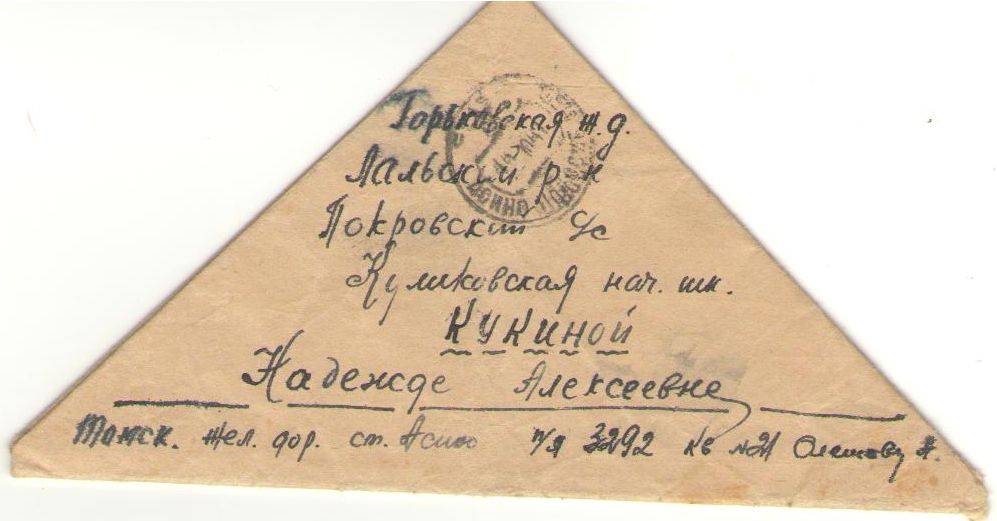 Горьковская ж.д.
Лальский р-к
Покровский с/с
Куликовская нач. шк.
КУКИНОЙ
Надежде Алексеевне
Томск. жел. дор. ст. Асино п/я 3292 кв №21
АСИНО ТОМСК